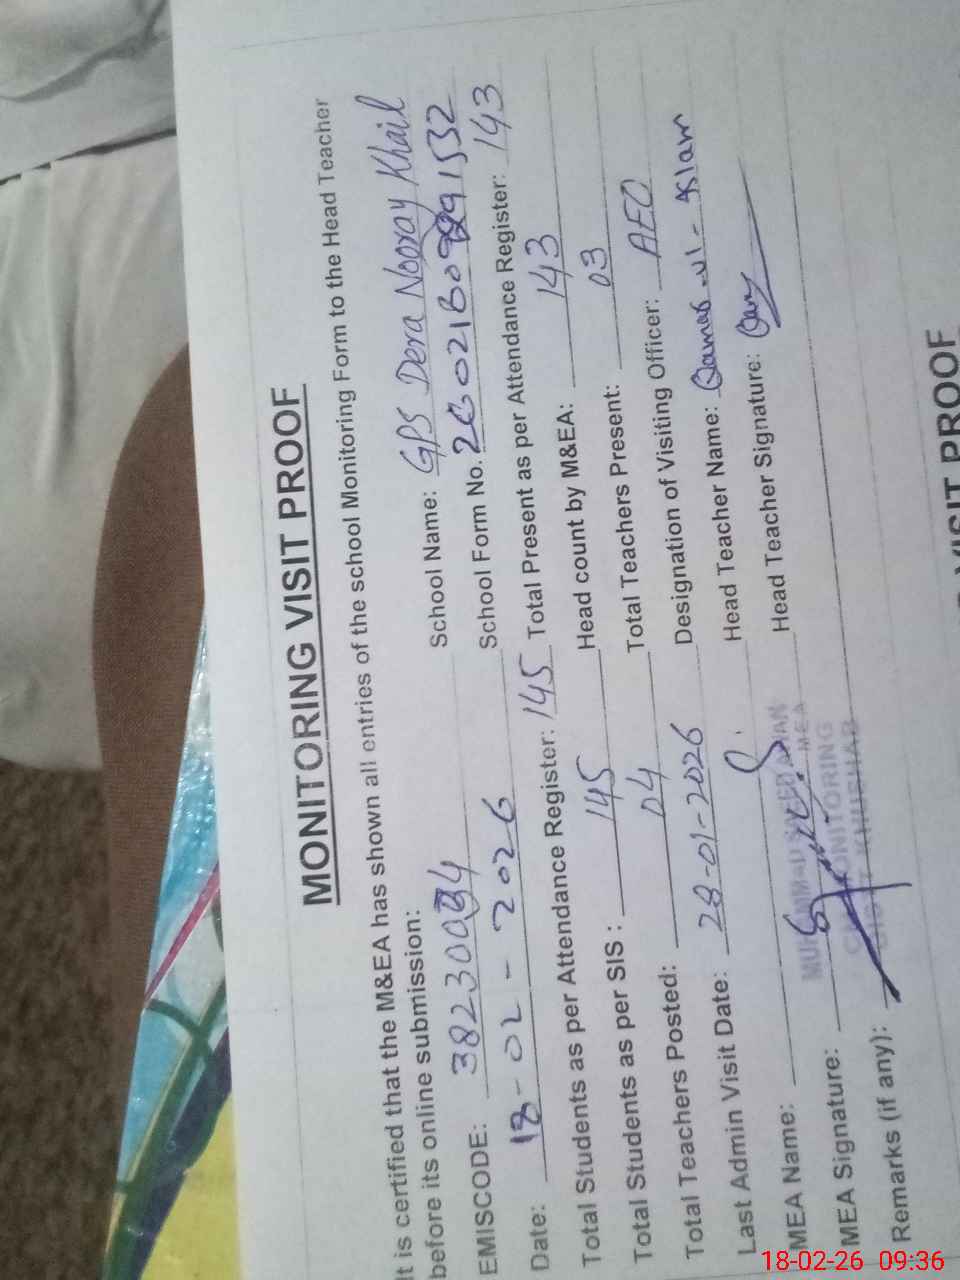 MONITORING VISIT PROOF
It is certified that the M&EA has shown all entries of the school Monitoring Form to the Head Teacher
before its online submission:
EMISCODE: 38230094 School Name: GPS Dera Nooray Khail
Date: 18-02-2026 School Form No.
Total Students as per Attendance Register: 145 Total Present as per Attendance Register: 143
Total Students as per SIS: 145 Head count by M&EA: 143
Total Teachers Posted: 04 Total Teachers Present: 03
Last Admin Visit Date: 28-01-2026 Designation of Visiting Officer: AEO
MEA Name: Head Teacher Name: Qamar-ul-Islam
MEA Signature: Head Teacher Signature:
Remarks (if any):
MUHAMMAD SAEED
MEA
MONITORING
DISTT KHUSHAB
VISIT PROOF
18-02-26 09:36